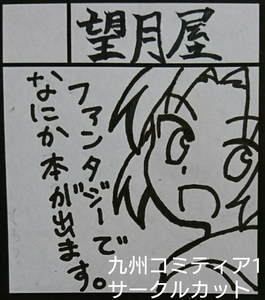 望月屋
ファンタジーで
なにか本が出ます。
九州コミティア1
サークルカット